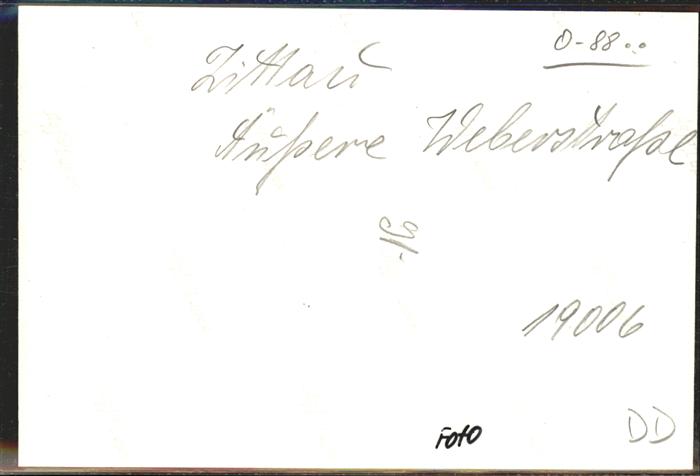 O-88..
Zittau
Äußere Weberstraße
19006
Foto
DD